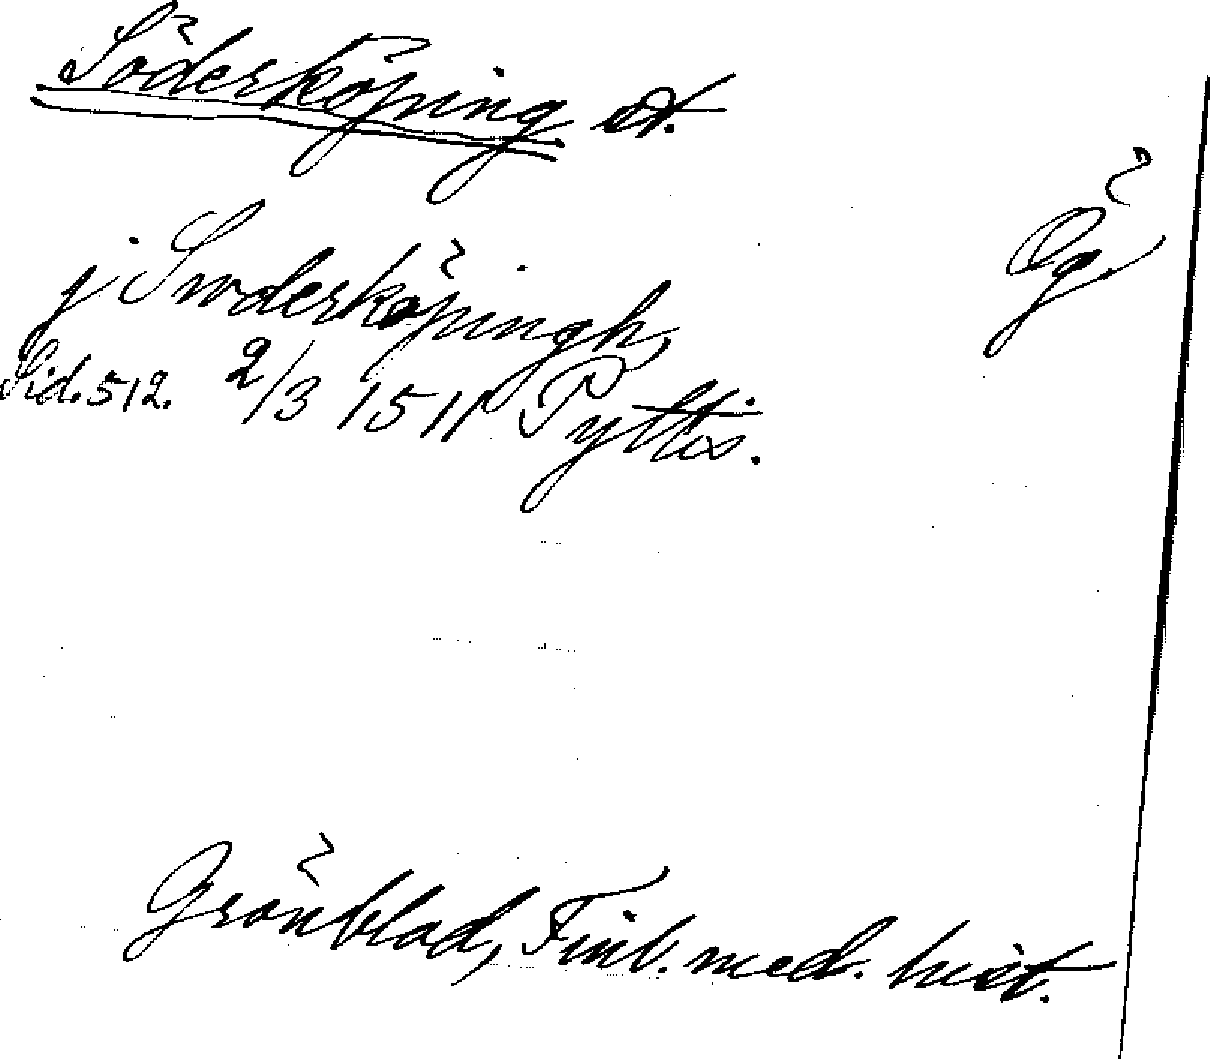 Söderköping st.
Ög.
j Swderköpingh,
Sid. 512. 2/3 1511 Pyttis.
Grönblad, Finl. med. hist.